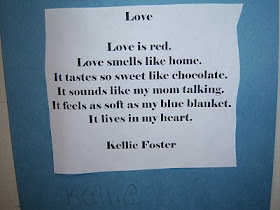 Love
Love is red.
Love smells like home.
It tastes so sweet like chocolate.
It sounds like my mom talking.
It feels as soft as my blue blanket.
It lives in my heart.
Kellie Foster
Kellie